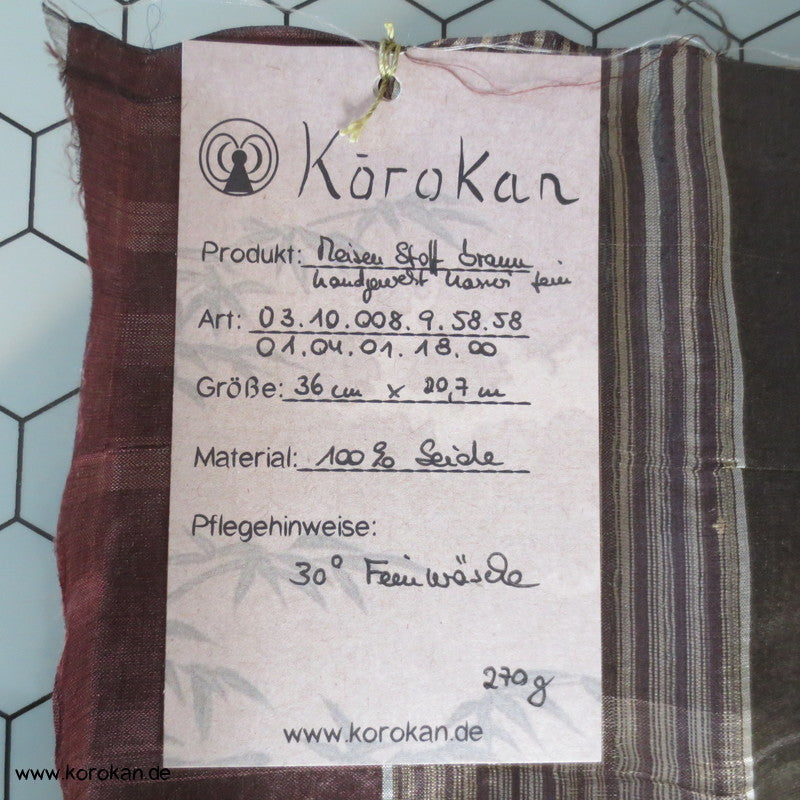 Kōrokan
Produkt: Meisen Stoff braun
handgewebt fein
Art: 03.10.008.9.58.58
01.04.01.18.00
Größe: 36 cm x 20,7 m
Material: 100% Seide
Pflegehinweise:
30° Feinwäsche
270g
www.korokan.de
www.korokan.de